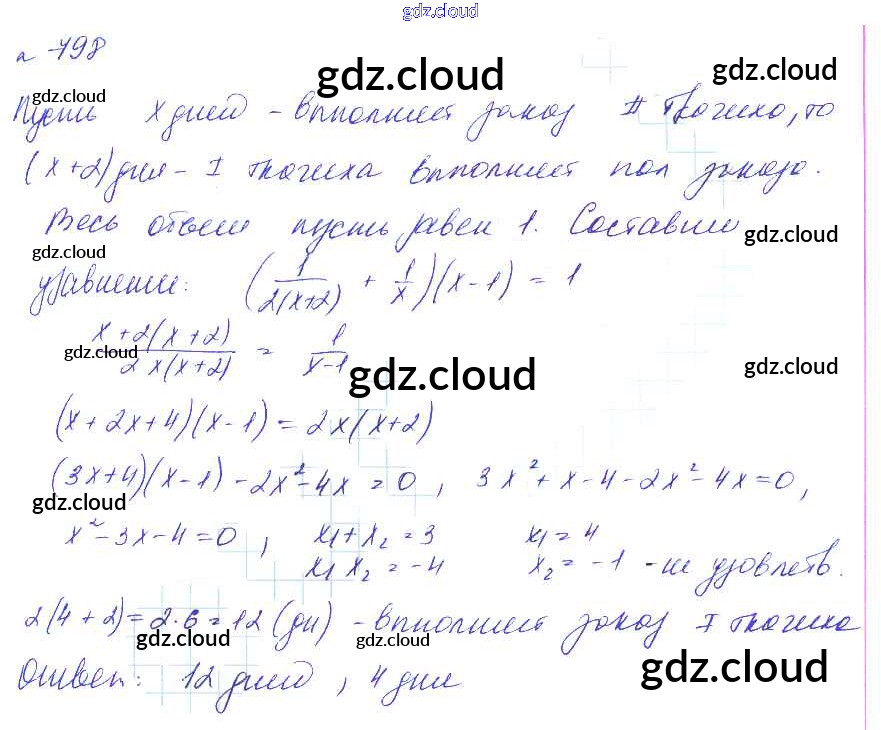 gdz.cloud
№ 798
gdz.cloud gdz.cloud
gdz.cloud
Пусть x дней - выполняет заказ II ткачиха, то
(x+2) дня - I ткачиха выполняет пол заказа.
Весь объем пусть равен 1. Составим
gdz.cloud gdz.cloud
уравнение: (1/2(x+2) + 1/x)(x-1) = 1
x+2(x+2)/2x(x+2) = 1/x-1
gdz.cloud gdz.cloud gdz.cloud
(x+2x+4)(x-1) = 2x(x+2)
(3x+4)(x-1) -2x²-4x = 0, 3x²+x-4-2x²-4x=0,
gdz.cloud
x²-3x-4=0, x₁+x₂=3 x₁=4
x₁x₂=-4 x₂=-1 - не удовлетв.
2(4+2)=2·6=12 (дн) - выполняет заказ I ткачиха
gdz.cloud gdz.cloud
Ответ: 12 дней, 4 дня
gdz.cloud